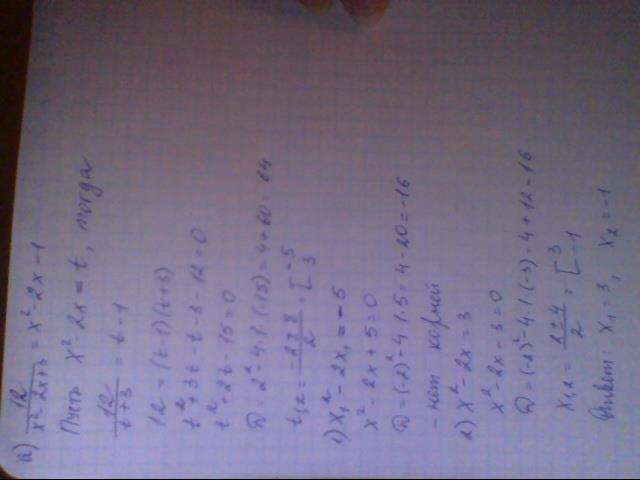 а) 12/(x²-2x+3) = x²-2x-1
Пусть x²-2x=t, тогда
12/(t+3) = t-1
12=(t-1)(t+3)
t²+3t-t-3-12=0
t²+2t-15=0
D=2²-4·1·(-15)=4+60=64
t₁,₂=(-2±8)/2=[-5 3
1) x²-2x=-5
x²-2x+5=0
D=(-2)²-4·1·5=4-20=-16
- нет корней
2) x²-2x=3
x²-2x-3=0
D=(-2)²-4·1·(-3)=4+12=16
x₁,₂=(2±4)/2=[3 -1
Ответ: x₁=3, x₂=-1